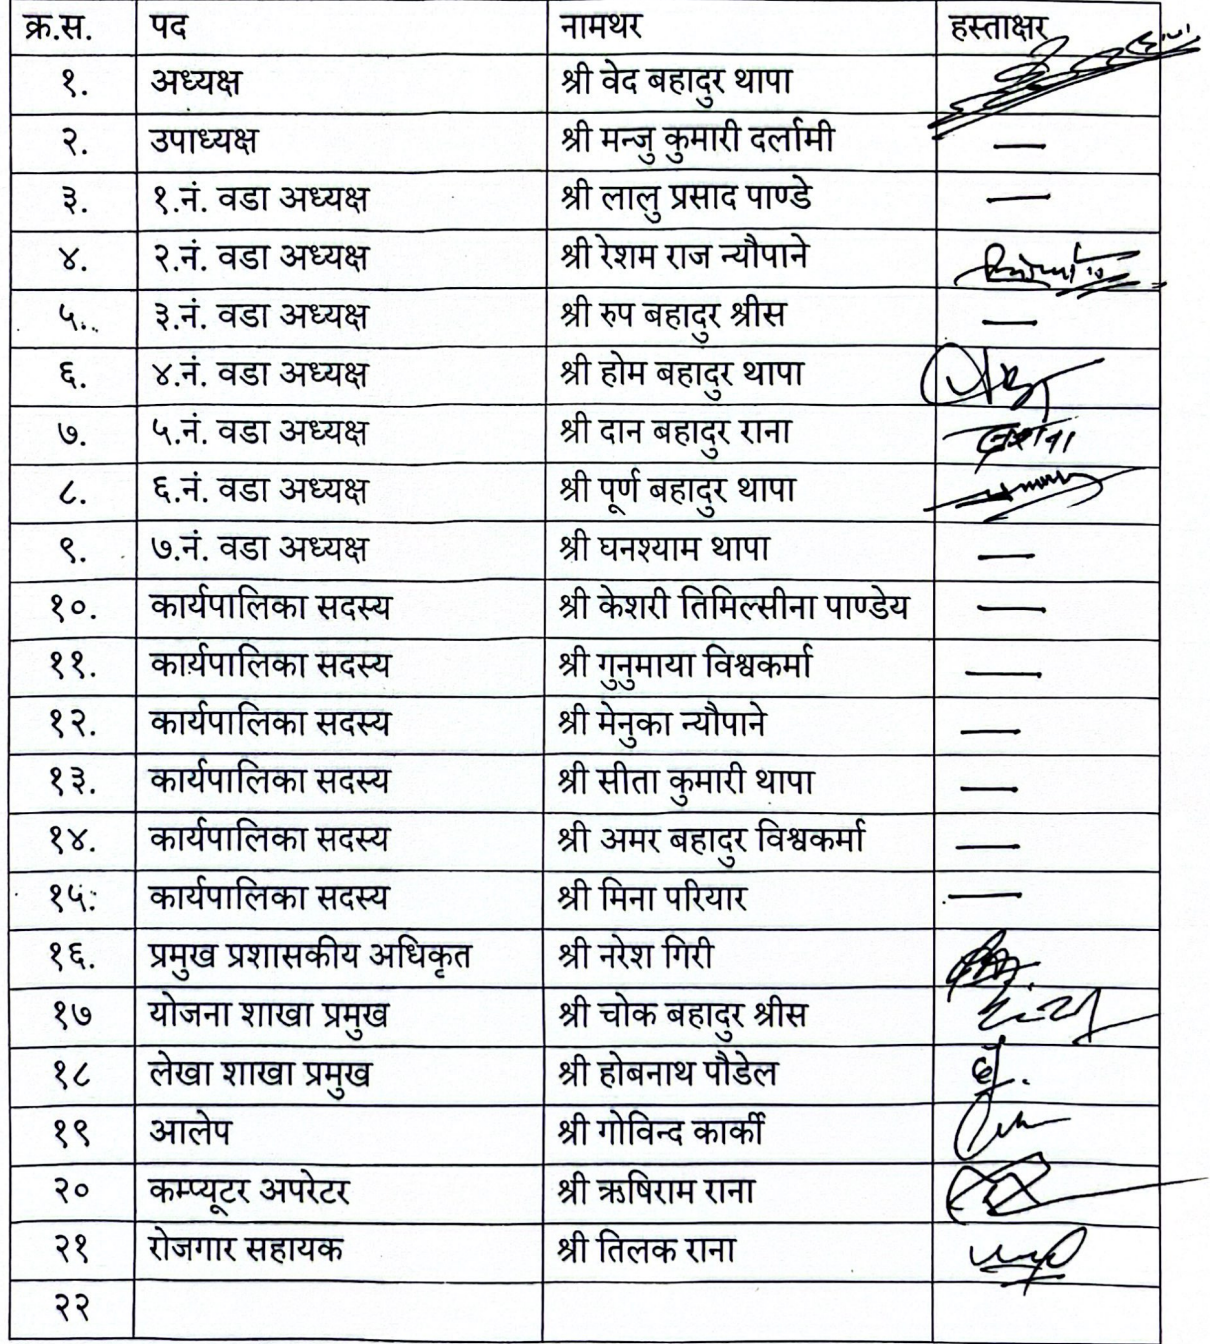 क्र.स. पद नामथर हस्ताक्षर
१. अध्यक्ष श्री वेद बहादुर थापा
२. उपाध्यक्ष श्री मन्जु कुमारी दर्लामी —
३. १.नं. वडा अध्यक्ष श्री लालु प्रसाद पाण्डे —
४. २.नं. वडा अध्यक्ष श्री रेशम राज न्यौपाने
५. ३.नं. वडा अध्यक्ष श्री रुप बहादुर श्रीस —
६. ४.नं. वडा अध्यक्ष श्री होम बहादुर थापा
७. ५.नं. वडा अध्यक्ष श्री दान बहादुर राना
८. ६.नं. वडा अध्यक्ष श्री पूर्ण बहादुर थापा
९. ७.नं. वडा अध्यक्ष श्री घनश्याम थापा —
१०. कार्यपालिका सदस्य श्री केशरी तिमिल्सीना पाण्डेय —
११. कार्यपालिका सदस्य श्री गुनुमाया विश्वकर्मा —
१२. कार्यपालिका सदस्य श्री मेनुका न्यौपाने —
१३. कार्यपालिका सदस्य श्री सीता कुमारी थापा —
१४. कार्यपालिका सदस्य श्री अमर बहादुर विश्वकर्मा —
१५. कार्यपालिका सदस्य श्री मिना परियार —
१६. प्रमुख प्रशासकीय अधिकृत श्री नरेश गिरी
१७ योजना शाखा प्रमुख श्री चोक बहादुर श्रीस
१८ लेखा शाखा प्रमुख श्री होबनाथ पौडेल
१९ आलेप श्री गोविन्द कार्की
२० कम्प्यूटर अपरेटर श्री ऋषिराम राना
२१ रोजगार सहायक श्री तिलक राना
२२